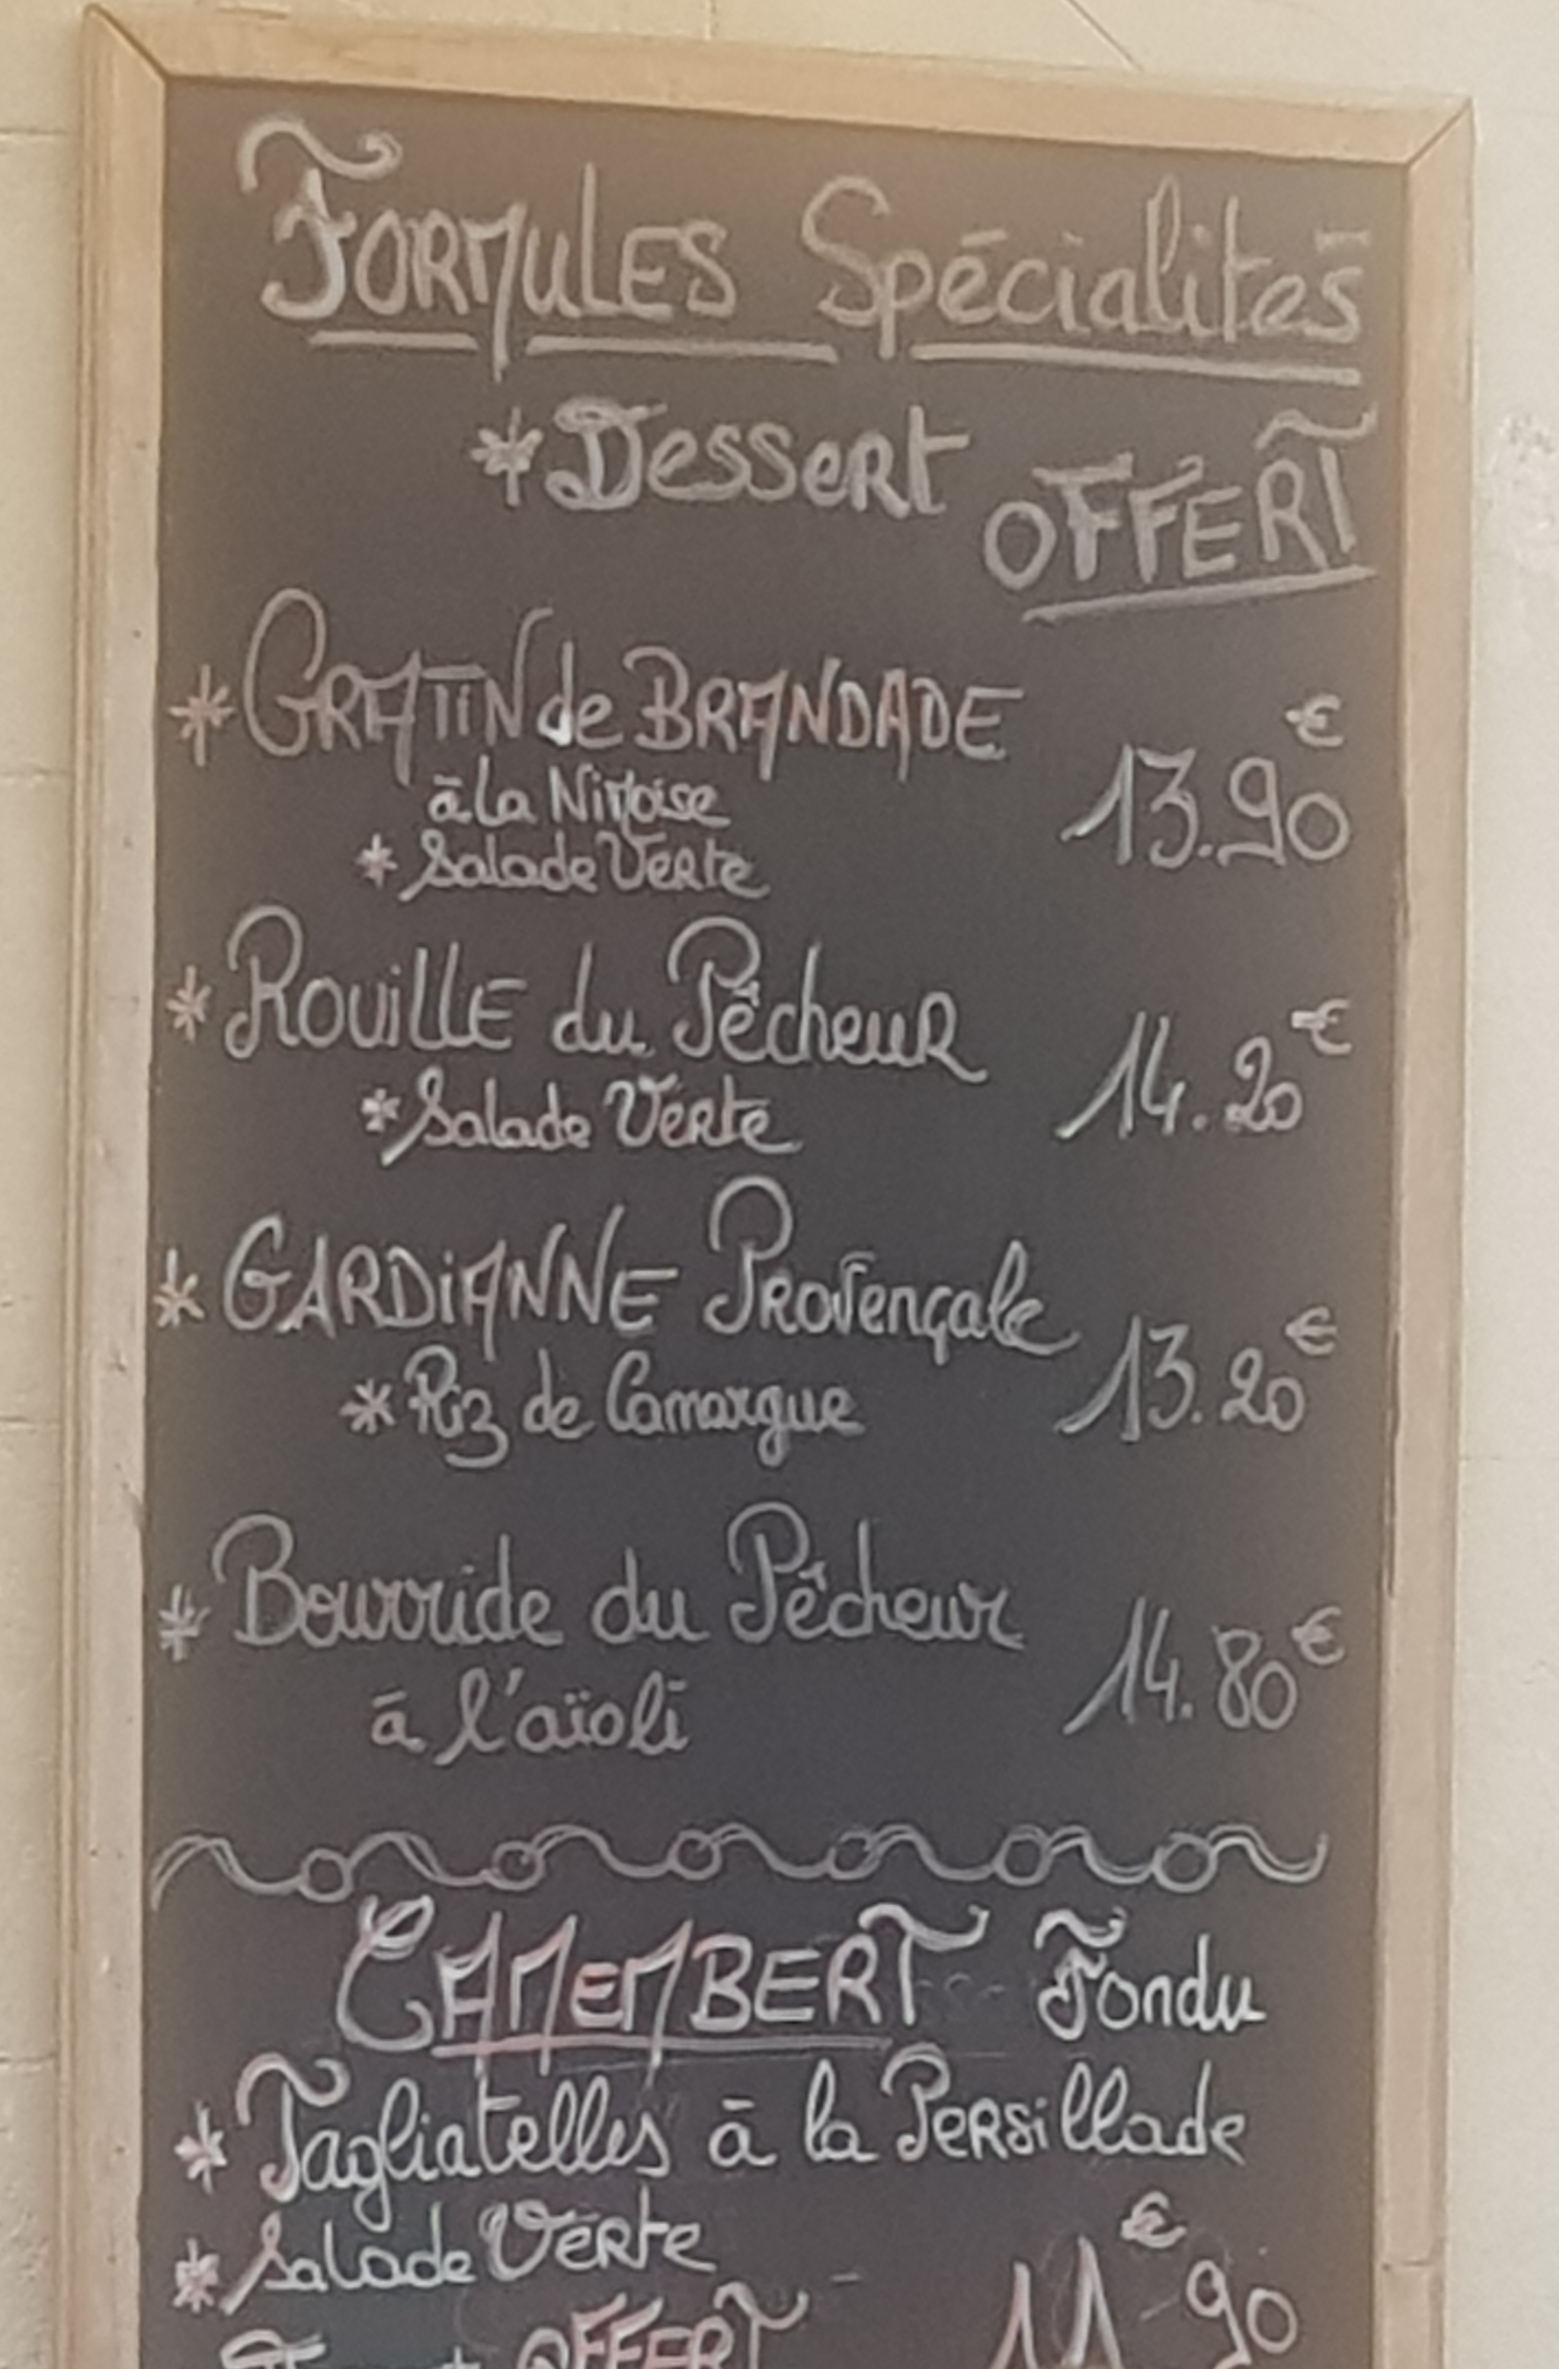 FORMULES Spécialités
* Dessert OFFERT
* GRATIN de BRANDADE
à la Nimoise
* Salade Verte
13.90€
* ROUILLE du Pêcheur
* Salade Verte
14.20€
* GARDIANNE Provençale
* Riz de Camargue
13.20€
* Bourride du Pêcheur
à l'aïoli
14.80€
CAMEMBERT Fondu
* Tagliatelles à la Persillade
* Salade Verte
11€90
OFFERT